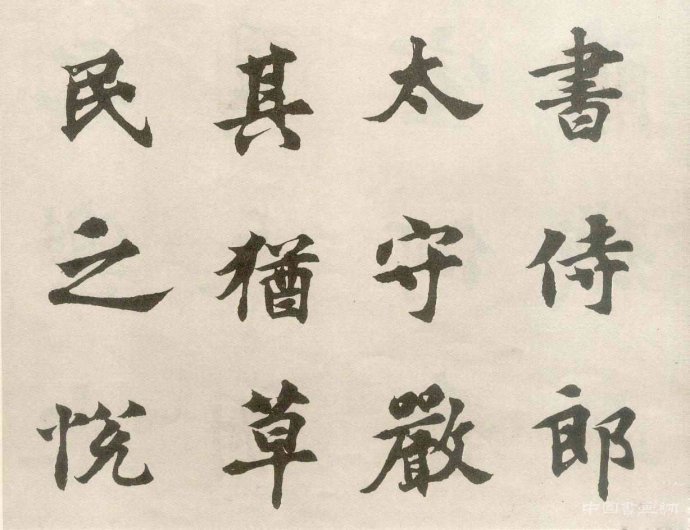 書侍郎
太守嚴
其猶草
民之悅
中国書画网